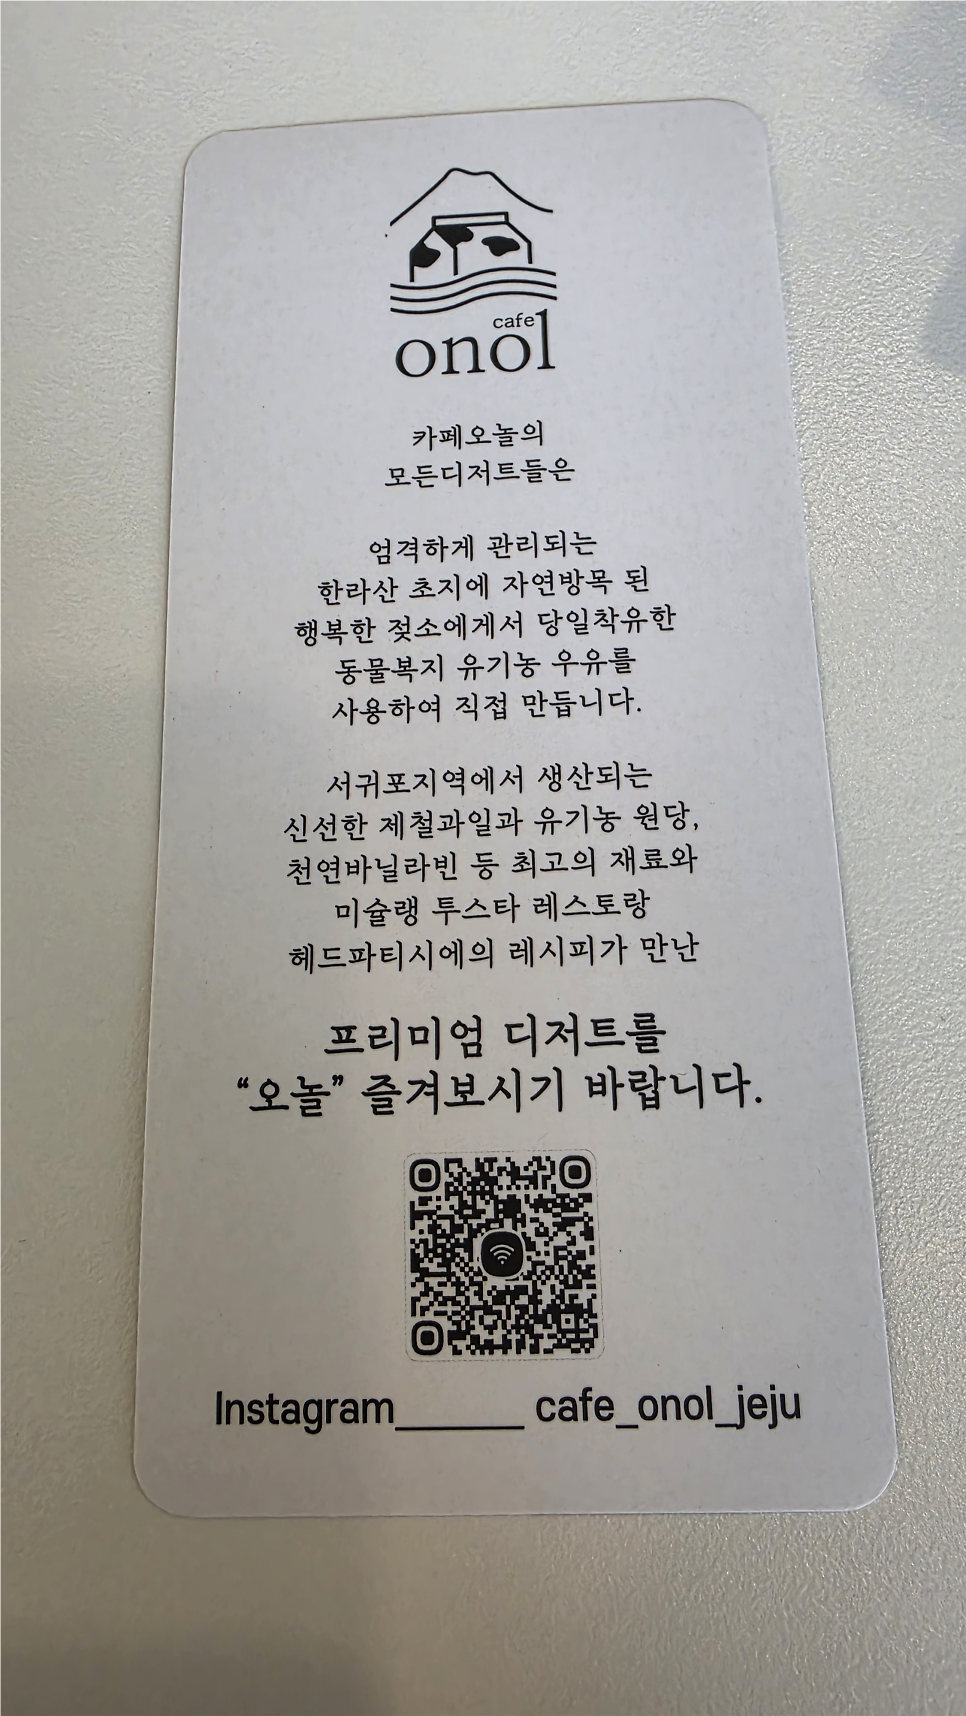 cafe
onol
카페오놀의
모든디저트들은
엄격하게 관리되는
한라산 초지에 자연방목 된
행복한 젖소에게서 당일착유한
동물복지 유기농 우유를
사용하여 직접 만듭니다.
서귀포지역에서 생산되는
신선한 제철과일과 유기농 원당,
천연바닐라빈 등 최고의 재료와
미슐랭 투스타 레스토랑
헤드파티시에의 레시피가 만난
프리미엄 디저트를
“오놀” 즐겨보시기 바랍니다.
Instagram______ cafe_onol_jeju